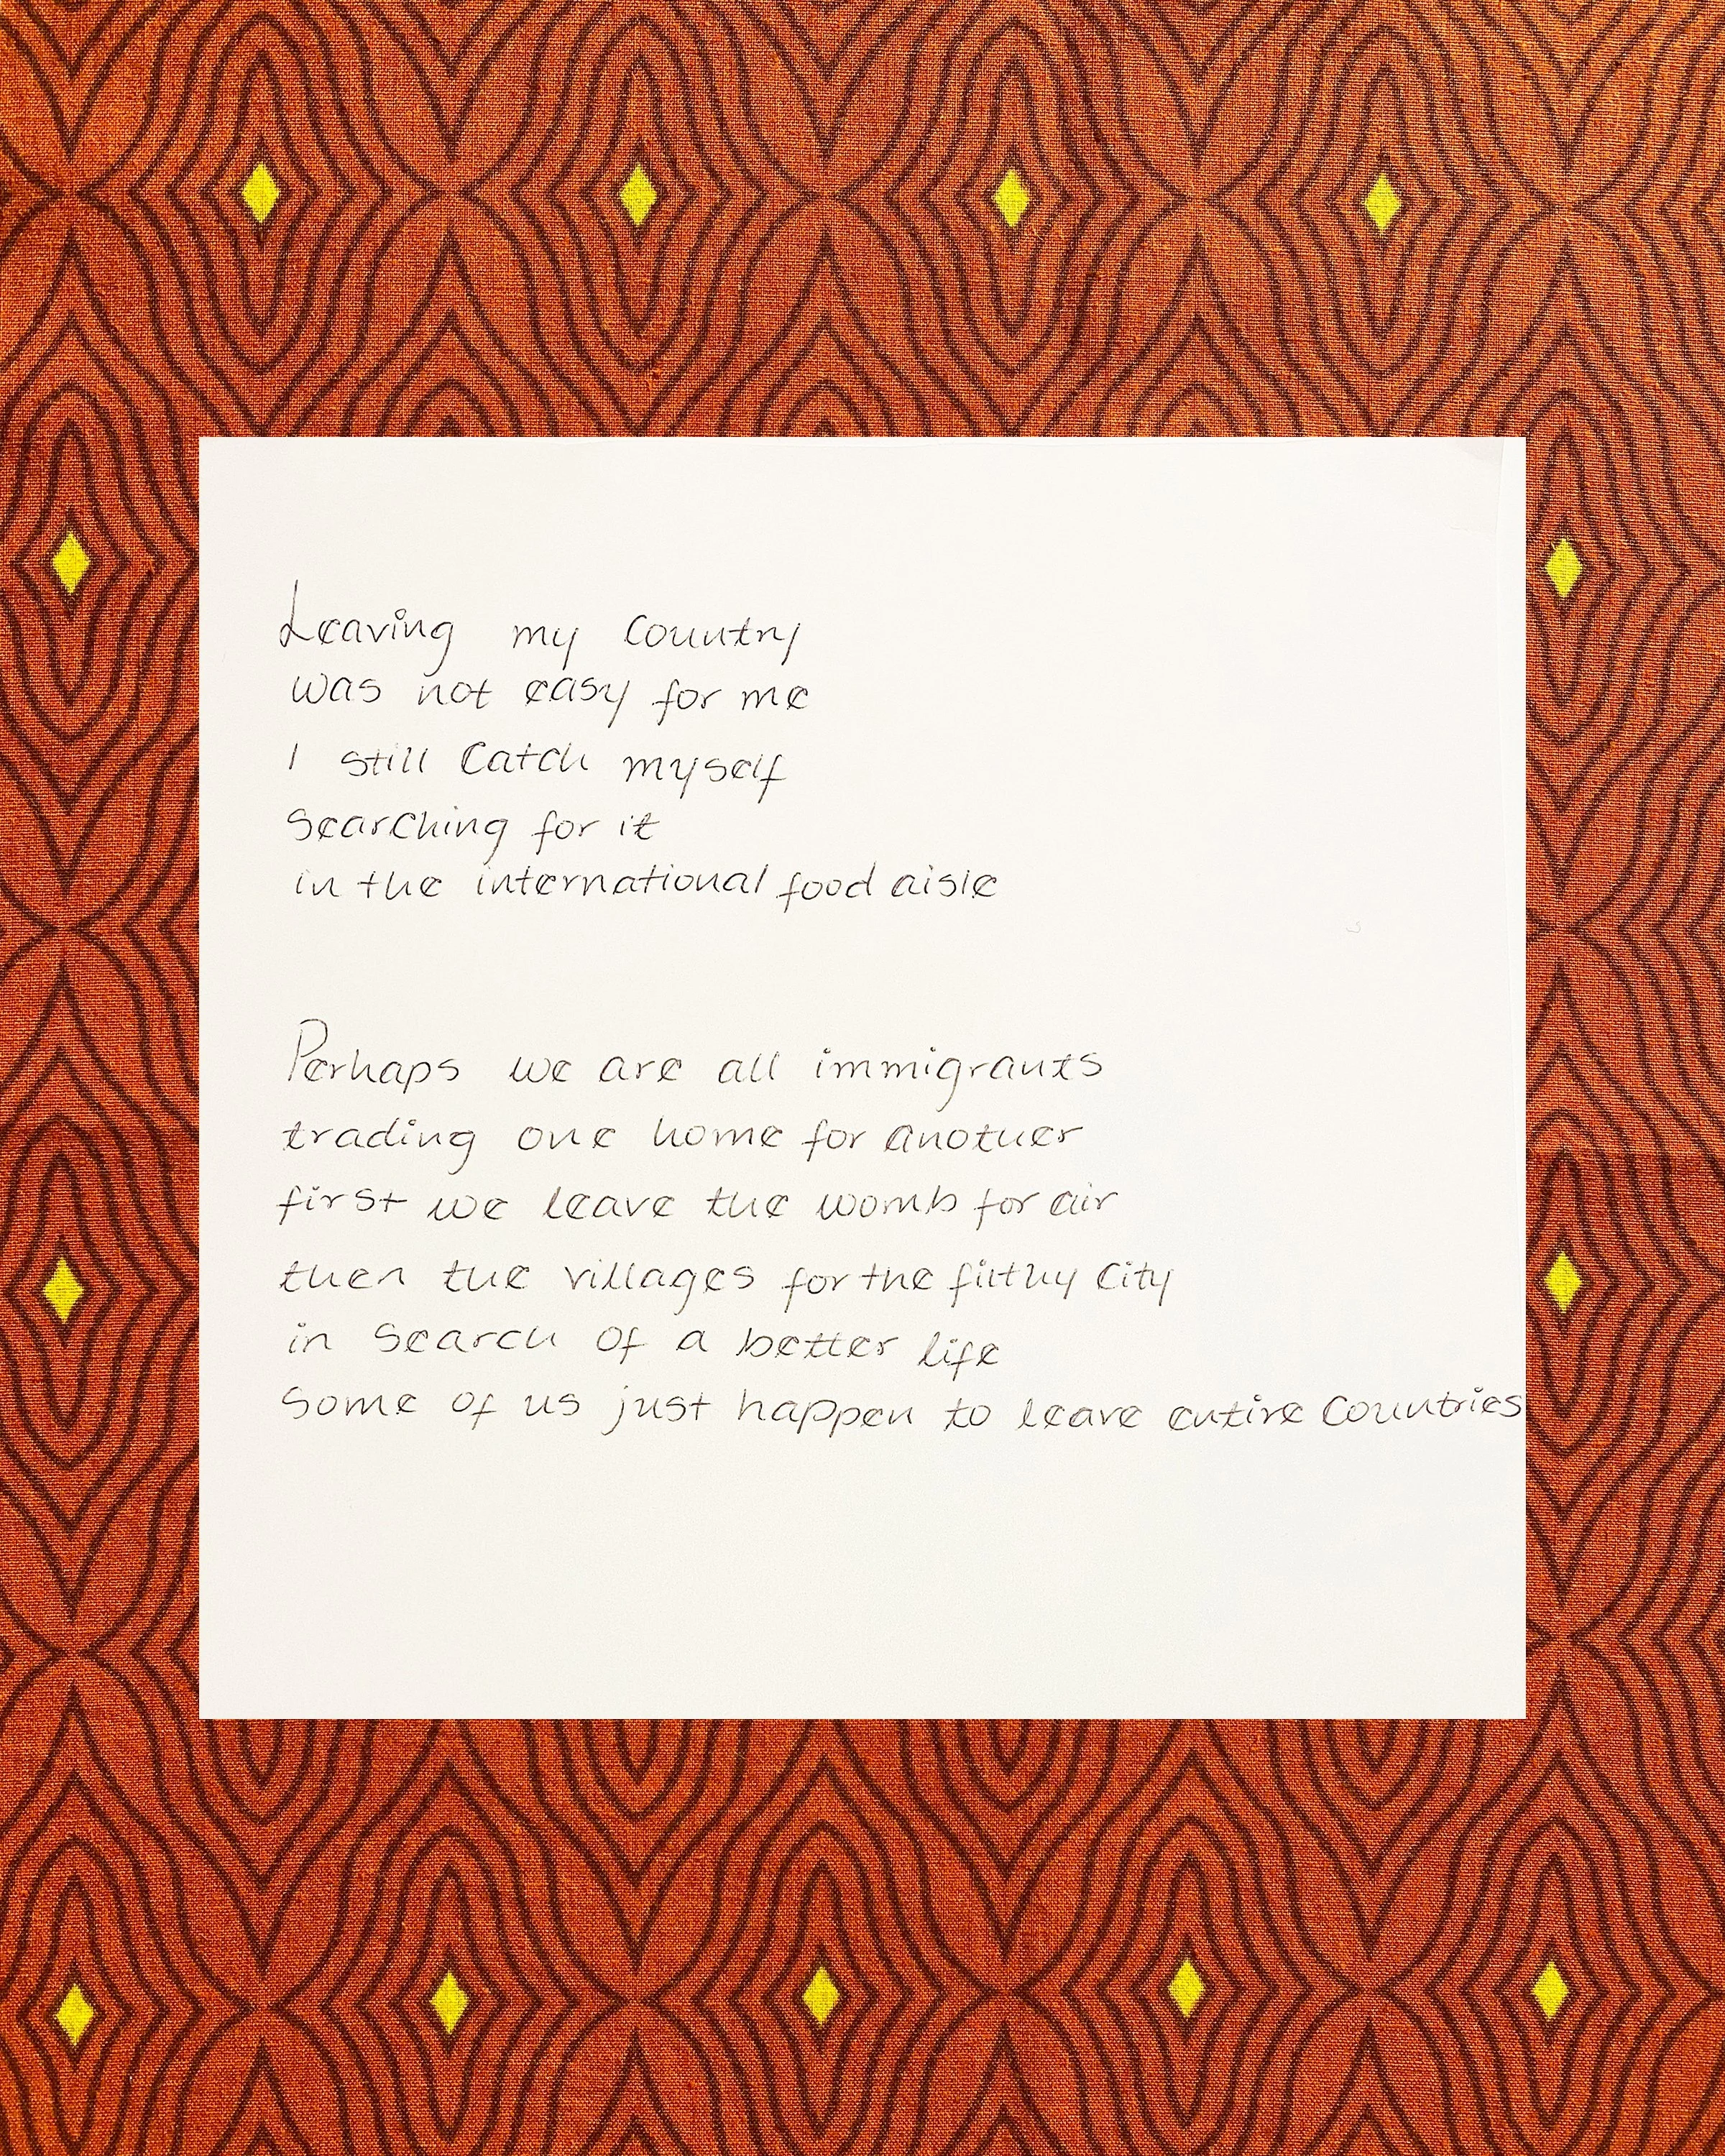 Leaving my country
was not easy for me
I still catch myself
searching for it
in the international food aisle
Perhaps we are all immigrants
trading one home for another
first we leave the womb for air
then the villages for the filthy city
in search of a better life
some of us just happen to leave entire countries